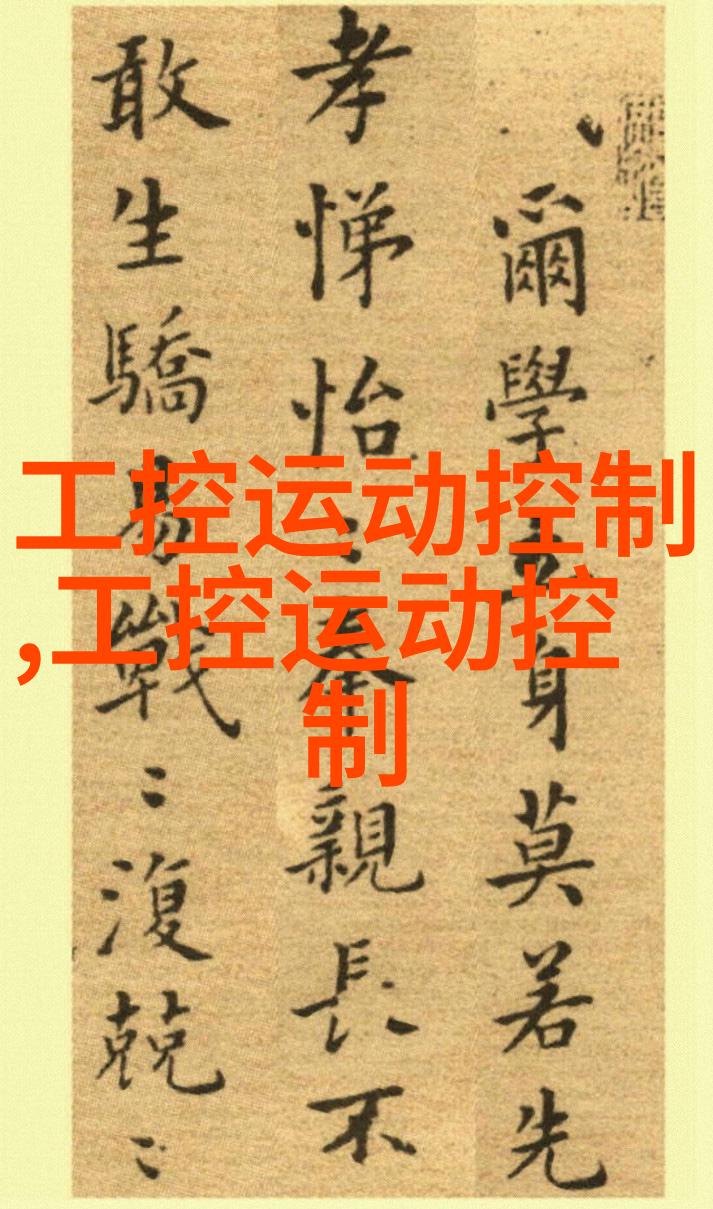 爾學立身莫若先
孝悌怡〻奉親長不
敢生驕易戰〻復兢〻
工控运动控制
,工控运动控
制